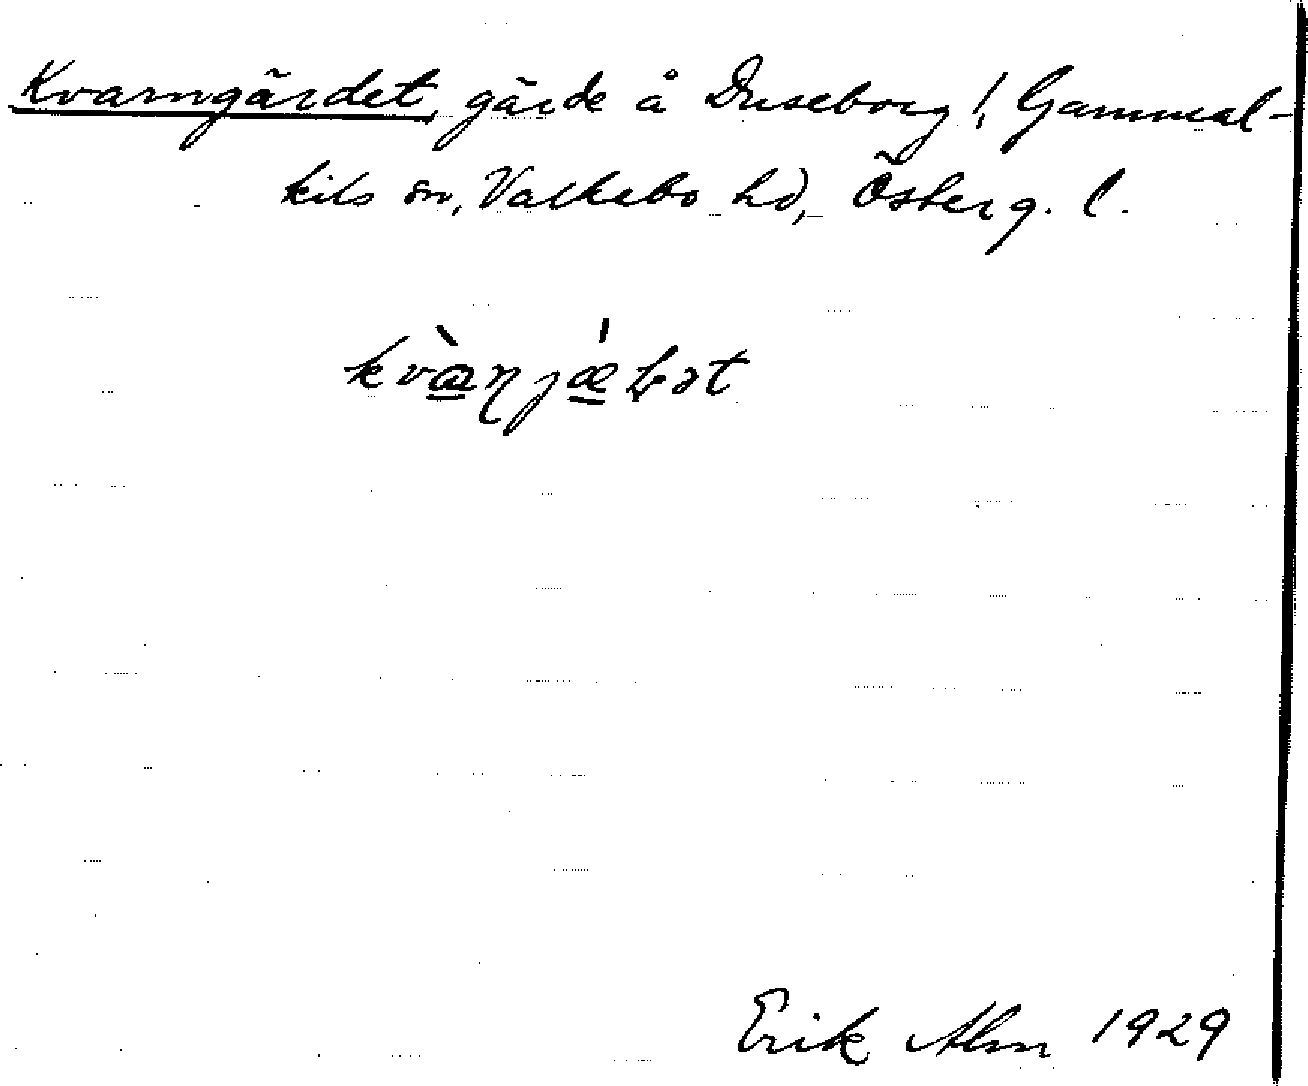 Kvarngärdet, gärde å Duseborg /, Gammal-
kils sn, Valkebo hd, Österg. l.
Erik Alm 1929